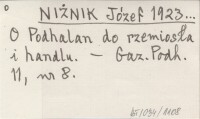 NIŻNIK Józef 1923...
O Podhalan do rzemiosła
i handlu. — Gaz. Podh.
11, nr 8.